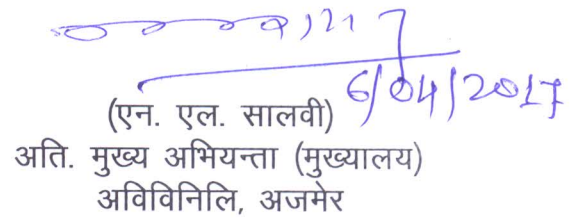 6/04/2017
(एन. एल. सालवी)
अति. मुख्य अभियन्ता (मुख्यालय)
अविविनिलि, अजमेर